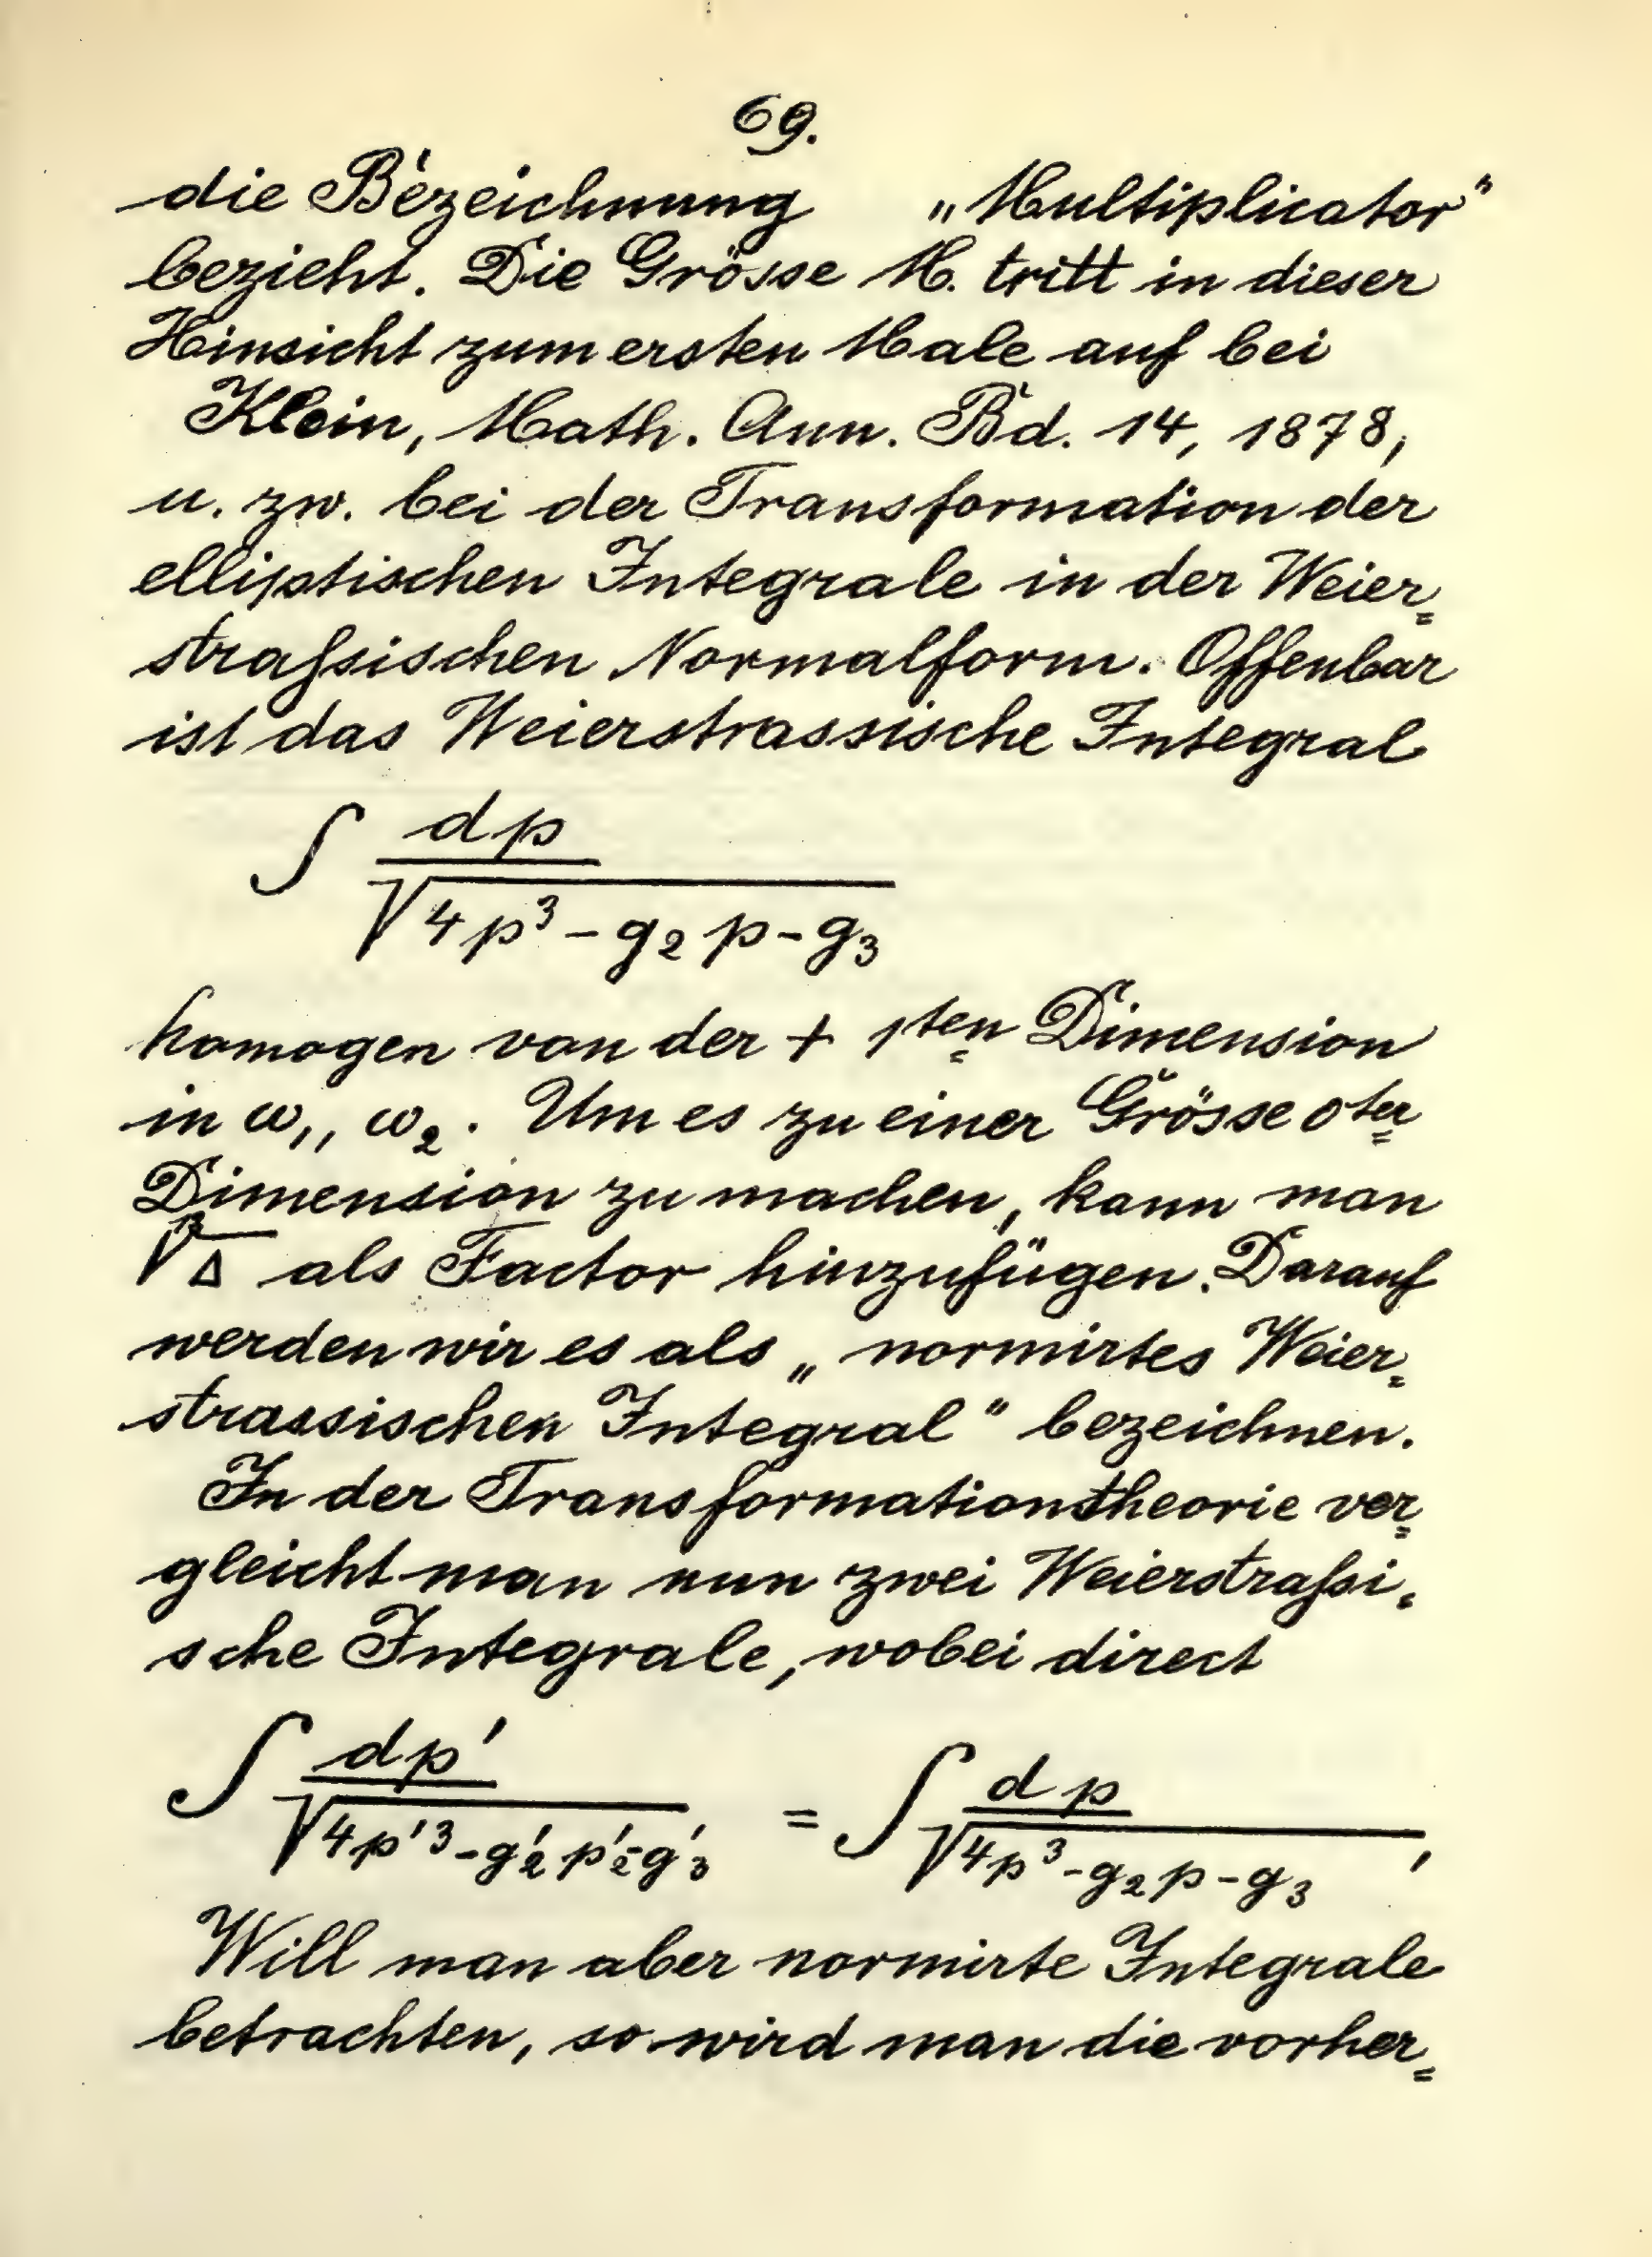 69.
die Bezeichnung „Multiplicator“
bezieht. Die Grösse M. tritt in dieser
Hinsicht zum ersten Male auf bei
Klein, Math. Ann. Bd. 14, 1878,
u. zw. bei der Transformation der
elliptischen Integrale in der Weier=
straſsischen Normalform. Offenbar
ist das Weierstrassische Integral
∫ dp / √(4p³ - g₂p - g₃)
homogen von der + 1ten Dimension
in ω₁, ω₂. Um es zu einer Grösse 0ter
Dimension zu machen, kann man
¹²√Δ als Factor hinzufügen. Darauf
werden wir es als „normirtes Weier=
strassischen Integral“ bezeichnen.
In der Transformationstheorie ver=
gleicht man nun zwei Weierstraſsi=
sche Integrale, wobei direct
∫ dp' / √(4p'³ - g₂'p'₂ - g₃') = ∫ dp / √(4p³ - g₂p - g₃),
Will man aber normirte Integrale
betrachten, so wird man die vorher=